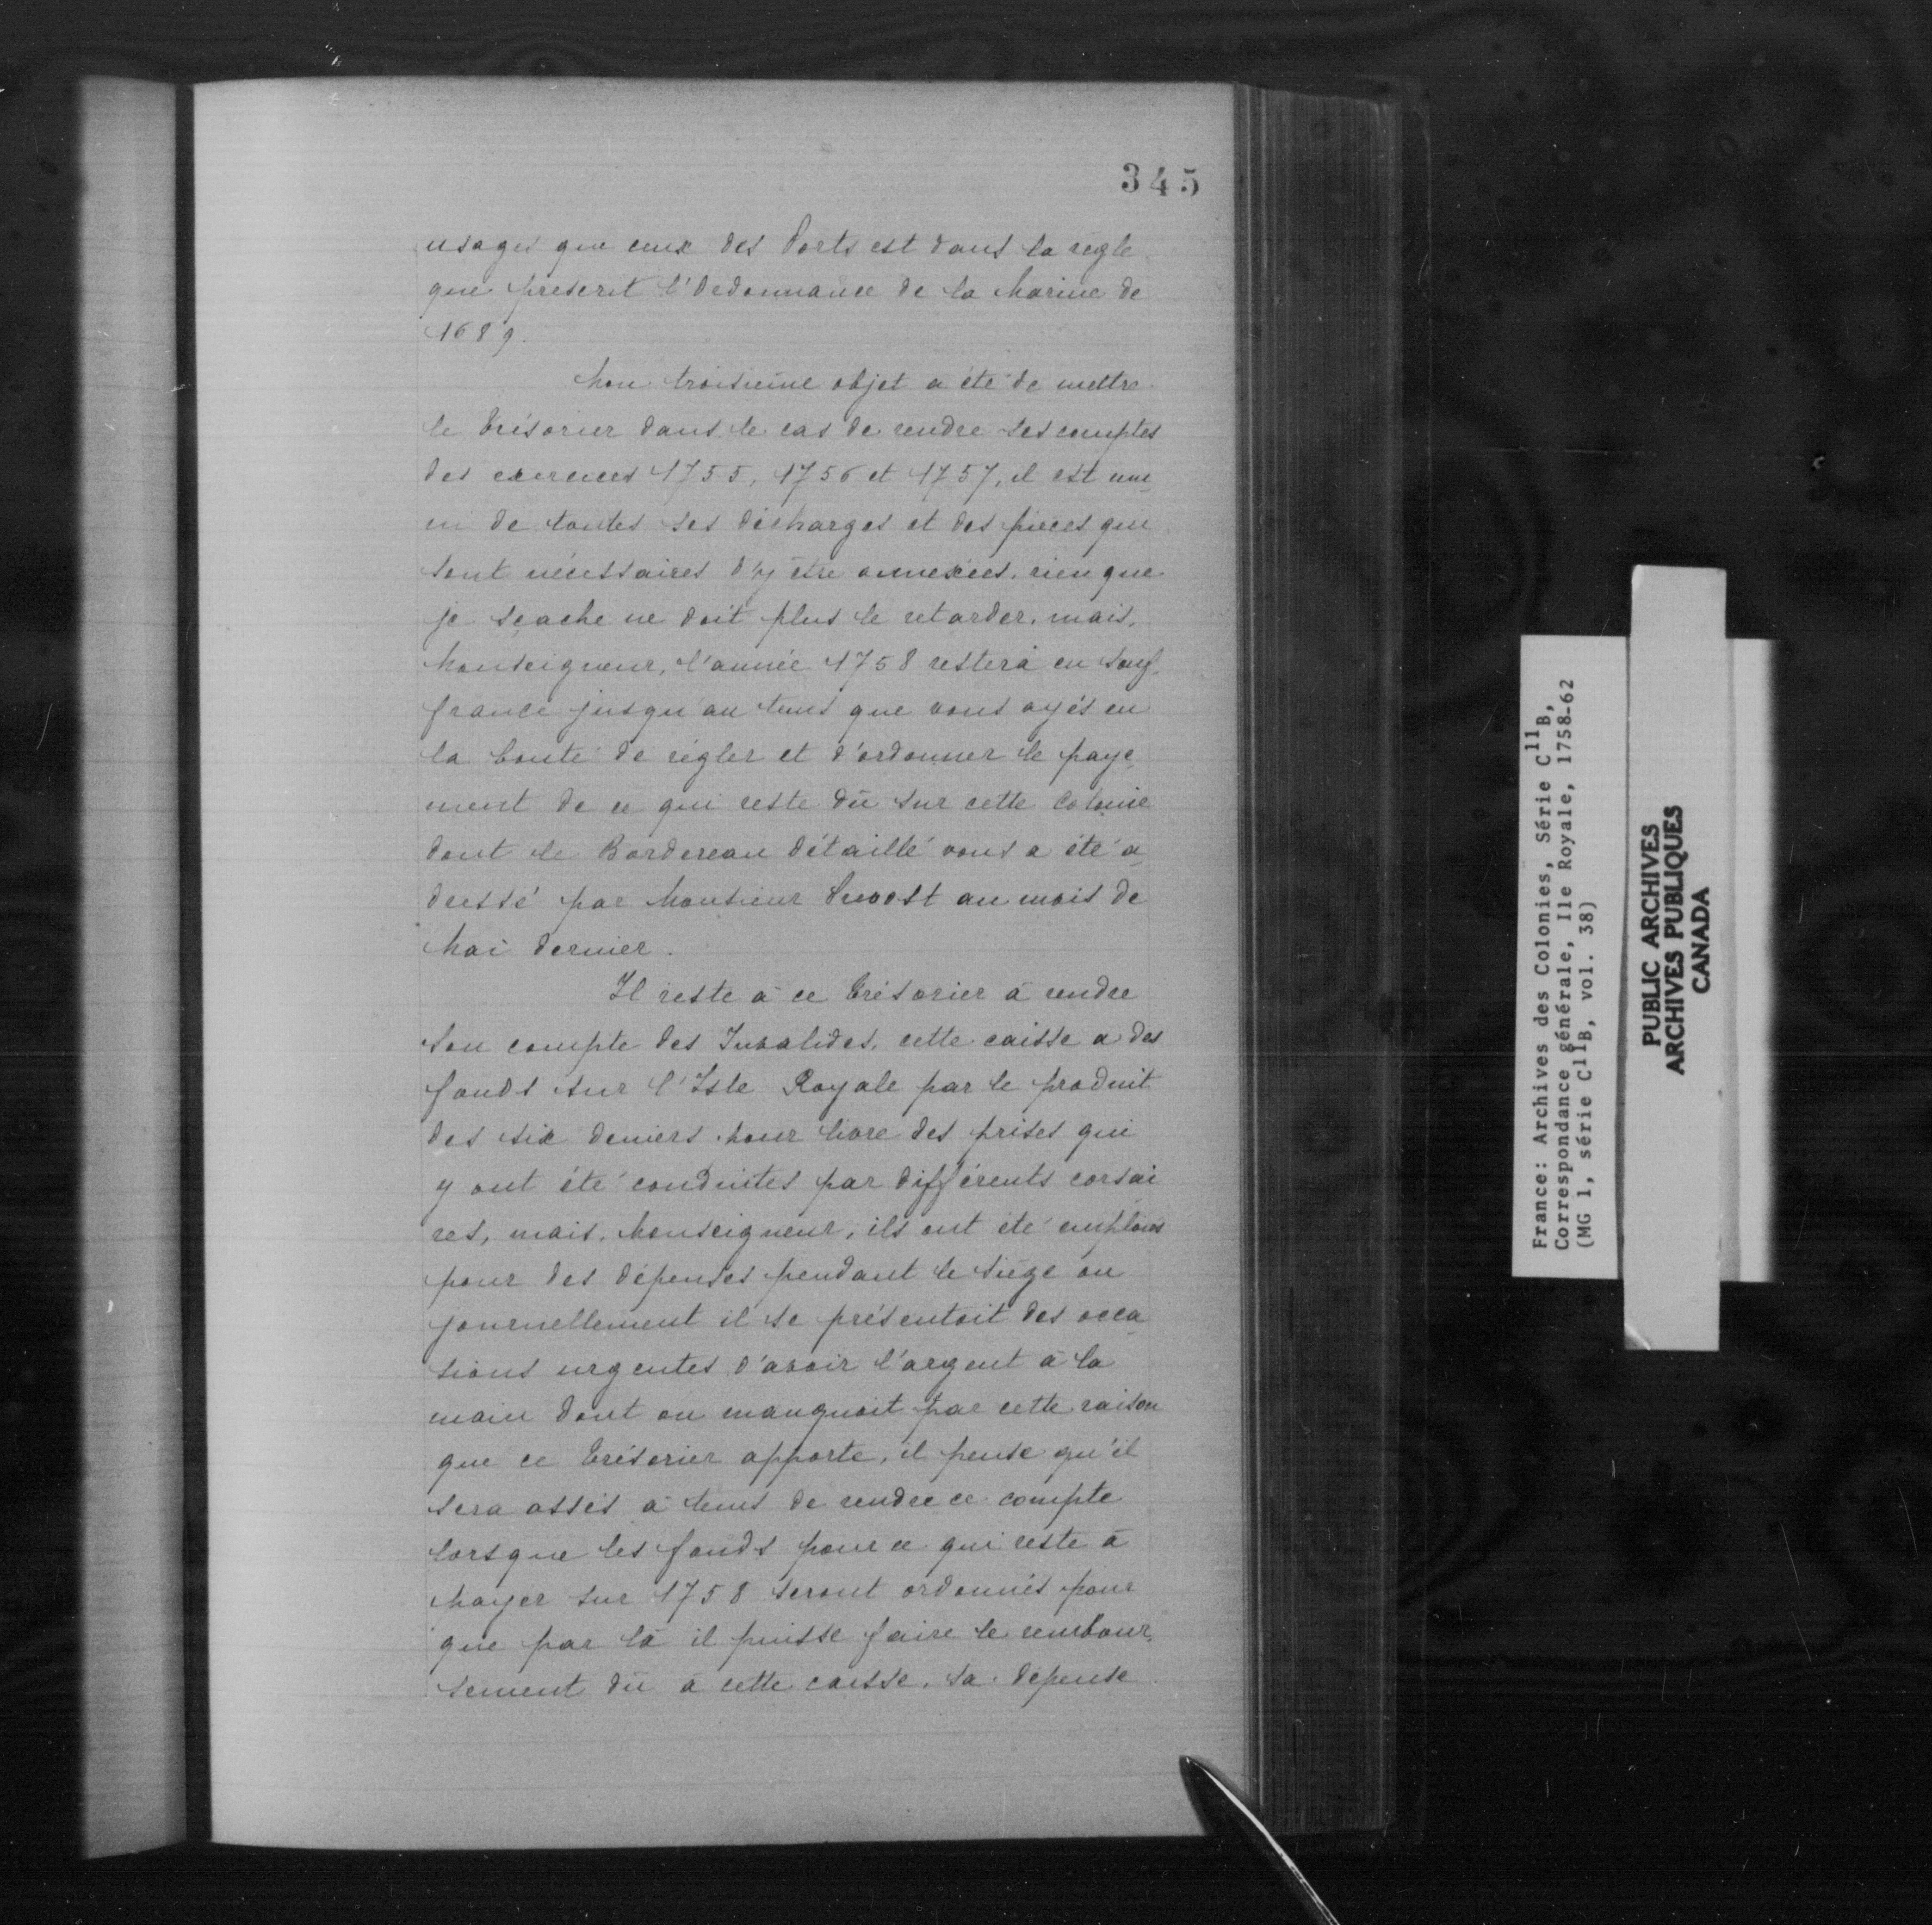 345
usages que ceux des Ports est dans la règle
que prescrit l'Ordonnance de la Marine de
1689.
Mon troisième objet a été de mettre
le Trésorier dans le cas de rendre ses comptes
des exercices 1755, 1756 et 1757, il est mu-
ni de toutes ses décharges et des pièces qui
sont nécessaires d'y être annexées, rien que
je sçache ne doit plus le retarder, mais,
Monseigneur, l'année 1758 restera en souf-
france jusqu'au tems que vous ayés eu
la bonté de régler et d'ordonner le paye-
ment de ce qui reste dû sur cette Colonie
dont le Bordereau détaillé vous a été a-
dressé par Monsieur Prevost au mois de
Mai dernier.
Il reste à ce Trésorier à rendre
son compte des Invalides, cette caisse a des
fonds sur l'Isle Royale par le produit
des six deniers pour livre des prises qui
y ont été conduites par différents corsai
res, mais, Monseigneur, ils ont été emploiés
pour des dépenses pendant le siège ou
journellement il se présentoit des occa-
sions urgentes d'avoir l'argent à la
main dont on manquoit par cette raison
que ce Trésorier apporte, il pense qu'il
sera assés à tems de rendre ce compte
lorsque les fonds pour ce qui reste à
payer sur 1758 seront ordonnés pour
que par là il puisse faire le rembour-
sement dû à cette caisse. Sa dépense
France: Archives des Colonies, Série C11B,
Correspondance générale, Ile Royale, 1758-62
(MG 1, série C11B, vol. 38)
PUBLIC ARCHIVES
ARCHIVES PUBLIQUES
CANADA